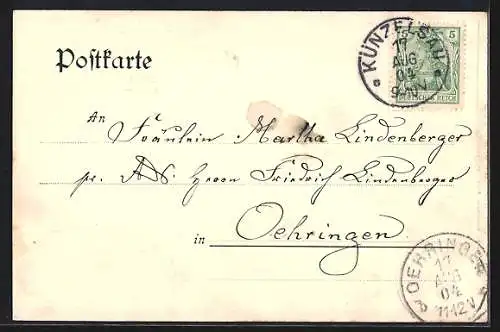 Postkarte
KÜNZELSAU
17
AUG
04
9-10V
5 5
DEUTSCHES REICH
An
Fräulein Martha Lindenberger
pr. Ad. Herrn Friedrich Lindenberger
in Oehringen
OEHRINGEN
17
AUG
04
11-12V